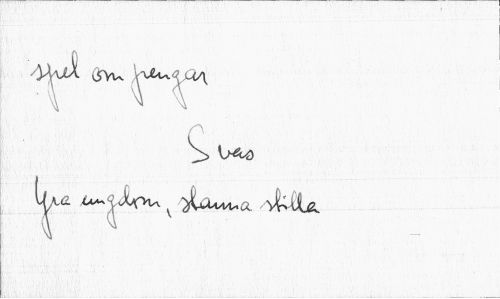 spel om pengar
S vers
Yra ungdom, stanna stilla